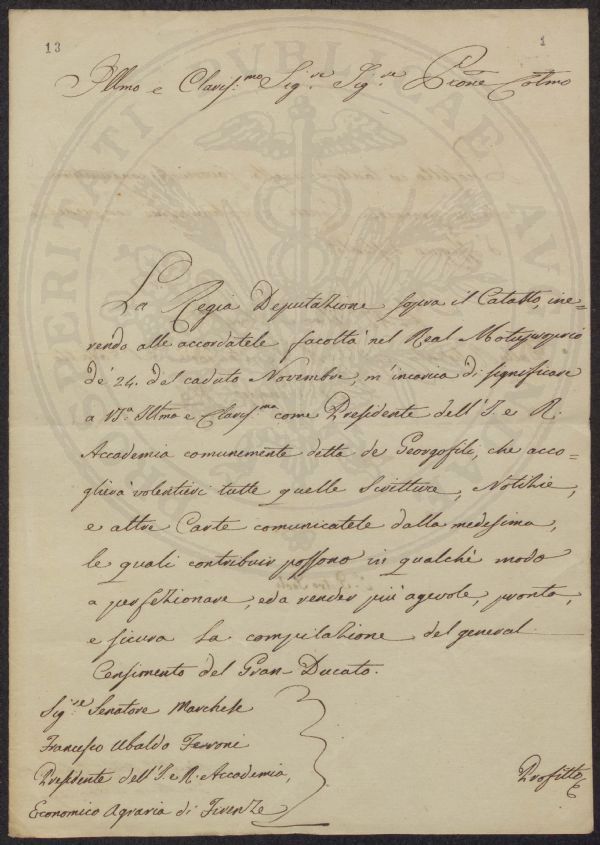 13
1
Illmo e Claris:mo Sig.re Sig.re Prone Colmo
La Regia Deputazione sopra il Catasto, ine=
rendo alle accordatele facoltà nel Real Motuproprio
de' 24. del caduto Novembre, m'incarica di significare
a V.ra Illma e Claris:ma come Presidente dell'I. e R.
Accademia comunemente detta de Georgofili, che acco=
glierà volentieri tutte quelle Scritture, Notizie,
e altre Carte comunicatele dalla medesima,
le quali contribuir possono in qualche modo
a perfezionare, ed a render più agevole, pronta,
e sicura la compilazione del general
Censimento del Gran-Ducato.
Sig.re Senatore Marchese
Francesco Ubaldo Feroni
Presidente dell'I. e R. Accademia,
Economico Agraria di Firenze
Profitto
PROSPERITATI PVBLICAE AVGENDAE